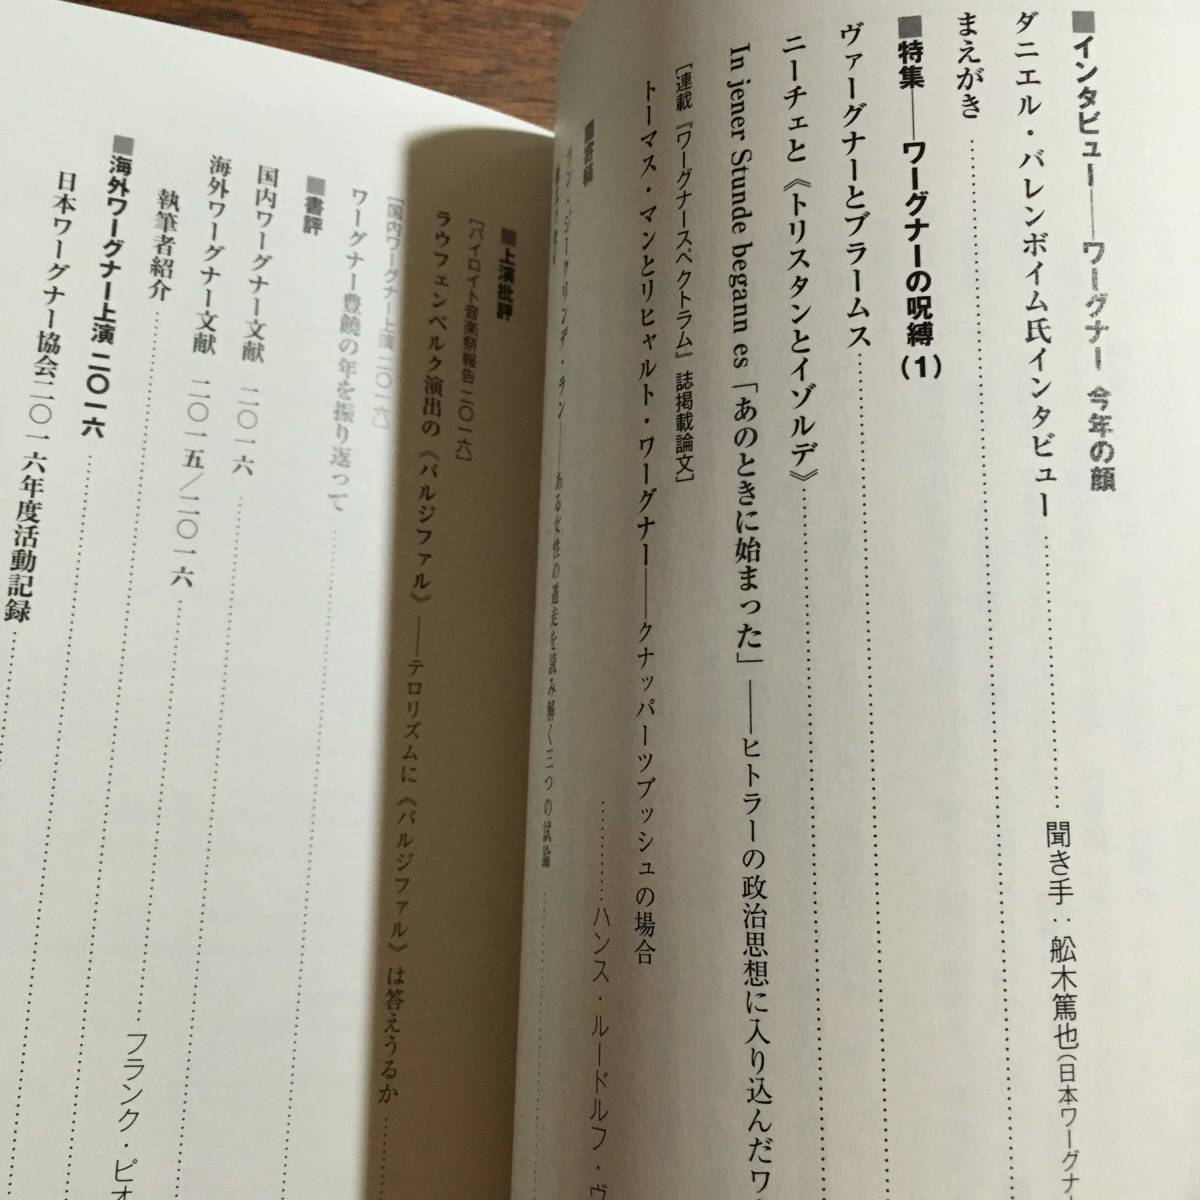 ■インタビュー――ワーグナー 今年の顔
ダニエル・バレンボイム氏インタビュー……聞き手：舩木篤也（日本ワーグナ
まえがき……
■特集――ワーグナーの呪縛（1）
ヴァーグナーとブラームス……
ニーチェと《トリスタンとイゾルデ》……
In jener Stunde begann es「あのときに始まった」――ヒトラーの政治思想に入り込んだワ
［連載『ワーグナースペクトラム』誌掲載論文］
トーマス・マンとリヒャルト・ワーグナー――クナッパーツブッシュの場合
……ハンス・ルードルフ・ヴ
■寄稿
ラン・ジークリンデ・ラン――ある女性の遁走を読み解く三つの試論……
■上演批評
［バイロイト音楽祭報告 二〇一六］
ラウフェンベルク演出の《パルジファル》――テロリズムに《パルジファル》は答えうるか……
［国内ワーグナー上演 二〇一六］
ワーグナー豊饒の年を振り返って……
■書評
国内ワーグナー文献 二〇一六……
海外ワーグナー文献 二〇一五／二〇一六……
執筆者紹介……
■海外ワーグナー上演 二〇一六……フランク・ピオ
日本ワーグナー協会二〇一六年度活動記録……